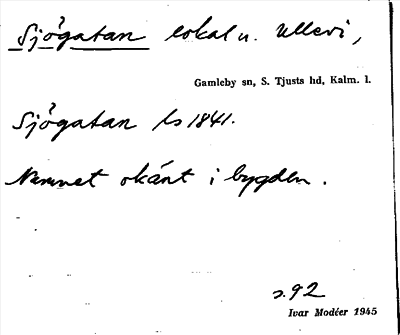 Sjögatan lokal u. Ullevi,
Gamleby sn, S. Tjusts hd, Kalm. l.
Sjögatan ls 1841.
Namnet okänt i bygden.
s. 92
Ivar Modéer 1945